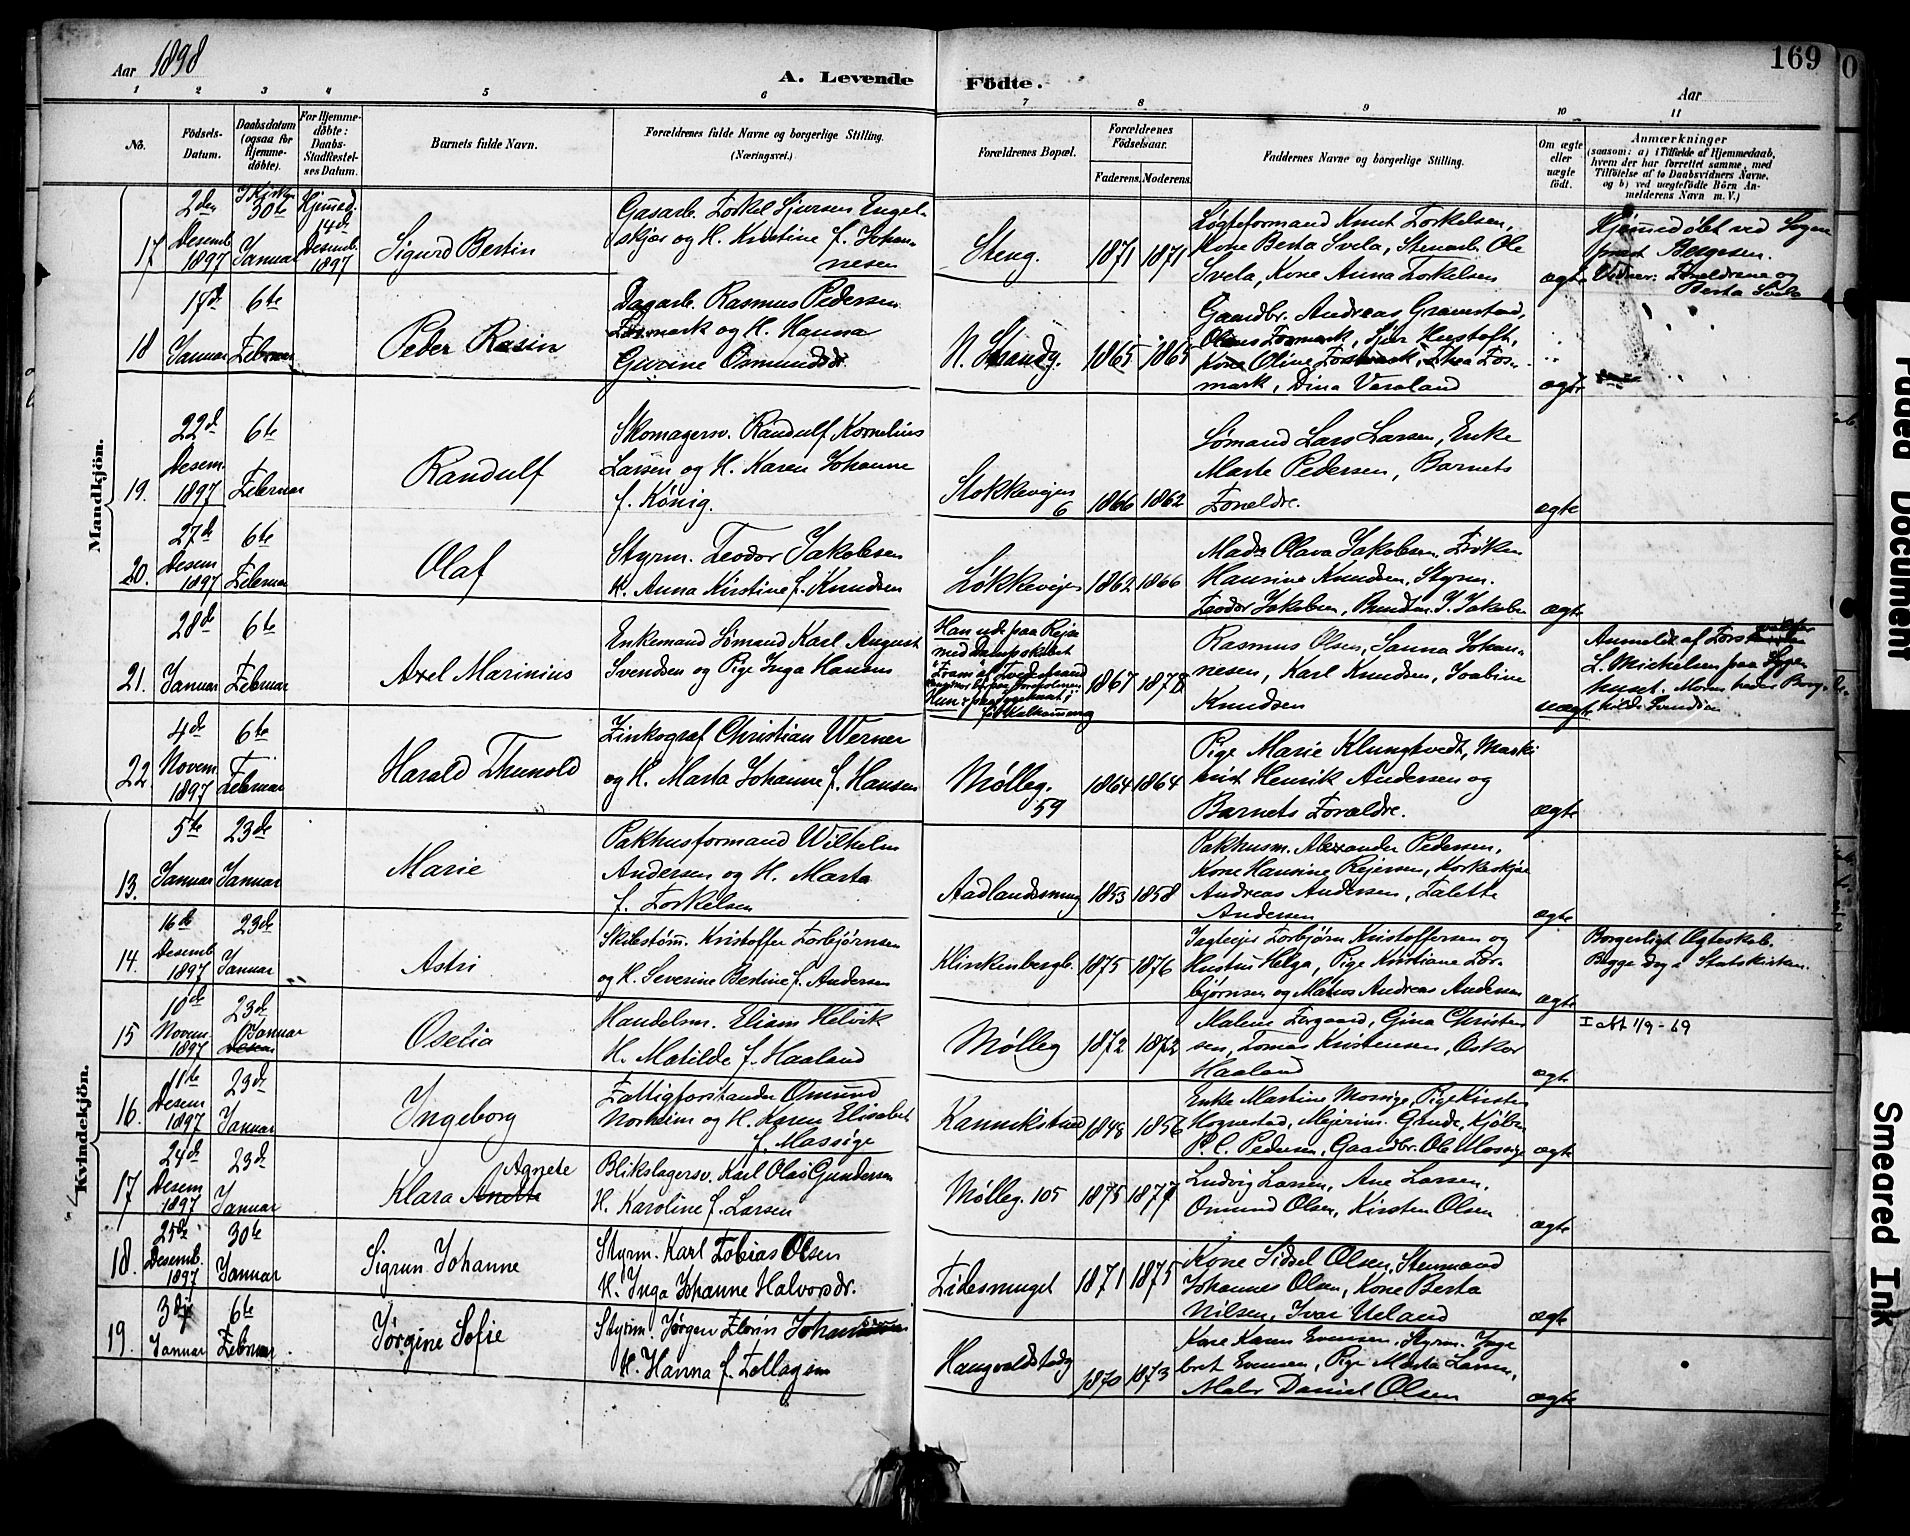 Aar 1898
A. Levende
Födte.
169
Aar
1 2 3 4 5 6 7 8 9 10 11
No.
Födsels-
Datum.
Daabsdatum
(ogsaa for
Hjemme-
døbte).
For Hjemme-
døbte:
Daabs-
Stadfæstel-
ses Datum.
Barnets fulde Navn.
Forældrenes fulde Navne og borgerlige Stilling.
(Næringsvei.)
Forældrenes Bopæl.
Forældrenes
Födselsaar.
Faderens.
Moderens.
Faddernes Navne og borgerlige Stilling.
Om ægte
eller
uægte
født.
Anmærkninger
(saasom: a) i Tilfælde af Hjemmedaab,
hvem der har forrettet samme, med
Tilföielse af to Daabsvidners Navne,
og b) ved uægtefödte Börn An-
melderens Navn m. V.)
Mandkjön.
17
2den
Desemb.
1897
30te
Januar
Hjemmed.
14d.
Desemb.
1897
Sigurd Bertin
Gasarb. Torkel Sjursen Engel-
skjær og H. Kristine f. Johan-
nesen
Steng.
1871
1871
Løgteformand Knut Torkelsen,
Kone Berta Svela, Stenarb. Ole
Svela, Kone Anna Torkelsen
ægte
Hjemmedøbt ved Sogne
præst Bergesen.
Vidner: Forældrene og
Berta Svela
18
17d.
Januar
6te
Februar
Peder Rasin
Dagarb. Rasmus Pedersen
Fosmark og H. Hanna
Gurine Osmundsdr.
N. Strandg.
1865
1865
Gaardbr. Andreas Gramstad,
Olaus Fosmark, Sjur Herstoft,
Kone Oline Fosmark, Thea Fos-
mark, Dina Varaland
ægte
19.
22d
Desem.
1897
6te
Februar
Randulf
Skomagersv. Randulf Kornelius
Larsen og H. Karen Johanne
f. König.
Stokkevejen
6
1866
1862
Sømand Lars Larsen, Enke
Marte Pedersen, Barnets
Forældre.
ægte
20.
27d
Desem
1897
6te
Februar
Olaf
Styrm. Teodor Jakobsen
H. Anna Kirstine f. Knudsen
Løkkevejen
1862
1866
Mad. Olava Jakobsen, Frøken
Hansine Knudsen, Styrm.
Teodor Jakobsen, J. Jakobsen
ægte
21.
28d
Januar
6te
Februar
Axel Marinius
Enkemand Sømand Karl August
Svendsen og Pige Inga Hansen
Han ude paa Rejse
med Dampskibet
"Fram" af Tvedestrand
1867
1878
Rasmus Olsen, Sanna Johan-
nesen, Karl Knudsen, Joaline
Knudsen
uægte
Anmeldt af
L. Michelsen paa Syge-
huset. Moren heder
22
4de
Novem
1897
6te
Februar
Harald Thunold
Zinkograf Christian Werner
og H. Marta Johanne f. Hansen
Mølleg.
59
1864
1864
Pige Marie Klungtvedt, Maski
nist Henrik Andersen og
Barnets Forældre.
ægte
Kvindekjön.
13.
5te
Januar
23de
Januar
Marie
Pakhusformand Wilhelm
Andersen og H. Marta
f. Torkelsen
Aadlandssmug
1853
1858
Pakhusm. Alexander Pedersen,
Kone Hansine Rejersen, Korkeskjær
Andreas Andersen, Talette
Andersen
ægte
14.
16de
Desemb.
1897
23de
Januar
Astri
Skibstøm. Kristoffer Torbjørnsen
og H. Severine Bertine f. Andersen
Klinkenbergb.
1875
1876
Jagtejer Torbjørn Kristoffersen og
Hustru Helga, Pige Kristiane Tor-
bjørnsen og Matros Andreas Andersen
ægte
Borgerligt Ægteskab.
Begge dog i Statskirken.
15
10de
Novem
1897
23de
Januar
Oselia
Handelsm. Eliam Helvik
H. Matilde f. Haaland
Mølleg
1872
1872
Malene Torgaard, Gina Christen
sen, Tomas Kristensen, Oskar
Haaland
ægte
I att 1/9-69
16.
11te
Desem
1897
23de
Januar
Ingeborg
Fattigforstander Omund
Norheim og H. Karen Elisabet
f. Massige
Kannikstræd
1848
1856
Enke Martine Mossige, Pige Kirsten
Hognestad, Mejerim. Grude, Kjøbm
P. C. Pedersen, Gaardbr. Ole Mossige
ægte
17
24de
Desem
1897
23de
Januar
Agnete
Klara Anette
Blikslagersv. Karl Olai Gundersen
H. Karoline f. Larsen
Mølleg. 105
1875
1877
Ludvig Larsen, Ane Larsen,
Omund Olsen, Kirsten Olsen
ægte
18.
25de
Desemb.
1897
30te
Januar
Sigrun Johanne
Styrm. Karl Tobias Olsen
H. Inga Johanne Halvorsdr.
Fidesmuget
1871
1875
Kone Sidsel Olsen, Stenmand
Johannes Olsen, Kone Berta
Nilsen, Ivar Ueland
ægte
19.
3dje
Januar
6te
Februar
Jörgine Sofie
Styrm. Jörgen Florin Johannesen
H. Hanna f. Tollagsen
Haugvaldstadg
1870
1873
Kone Karen Evensen, Styrm. Inge
bret Evensen, Pige Marta Larsen,
Maler Daniel Olsen
ægte
Faded Document
Smeared Ink